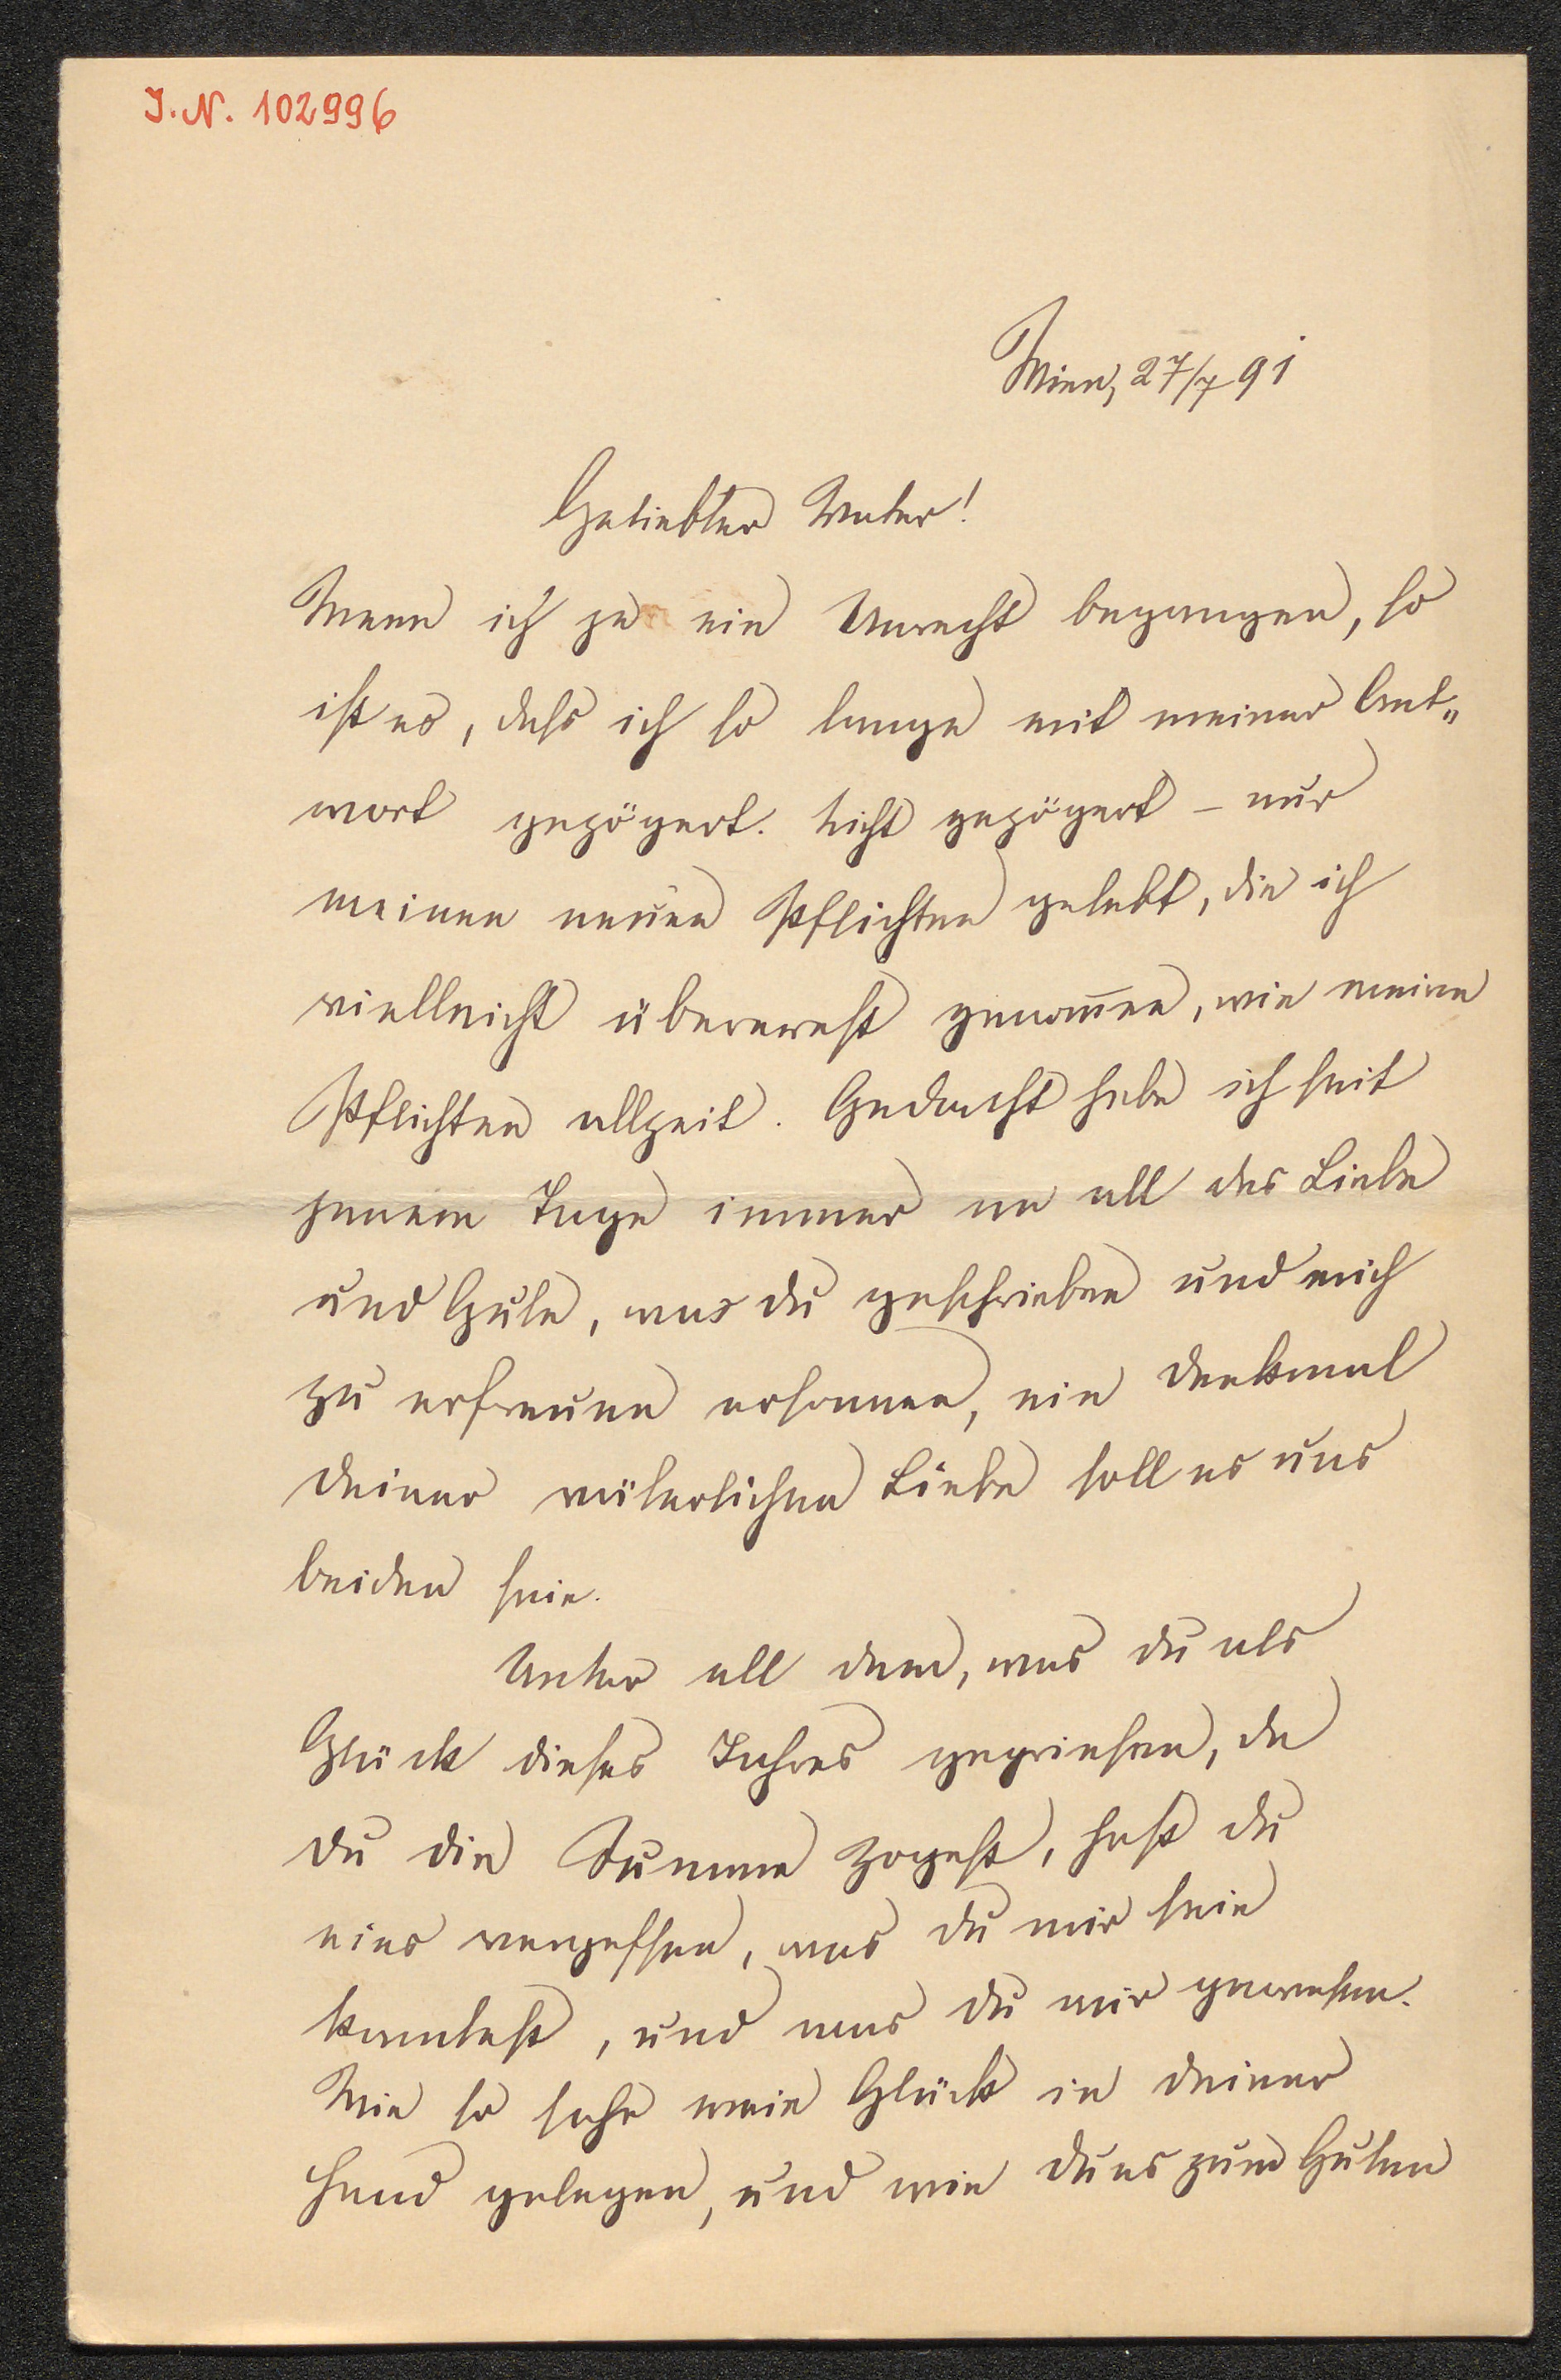 J. N. 102996
Wien, 27/7 91
Geliebter Vater!
Wenn ich je ein Unrecht begangen, so
ist es, dass ich so lange mit meiner Ant„
wort gezögert. Nicht gezögert – nur
meinen neuen Pflichten gelebt, die ich
vielleicht überernst genom̅en, wie meine
Pflichten allzeit. Gedacht habe ich seit
jenem Tage immer an all das Liebe
und Gute, was du geschrieben und mich
zu erfreuen ersonnen, ein Denkmal
deiner väterlichen Liebe soll es uns
beiden sein.
Unter all dem, was du als
Glück dieses Jahres gepriesen, da
du die Summe zogest, hast du
eines vergessen, was du mir sein
konntest, und was du mir gewesen.
Wie so sehr mein Glück in deiner
Hand gelegen, und wie du es zum Guten